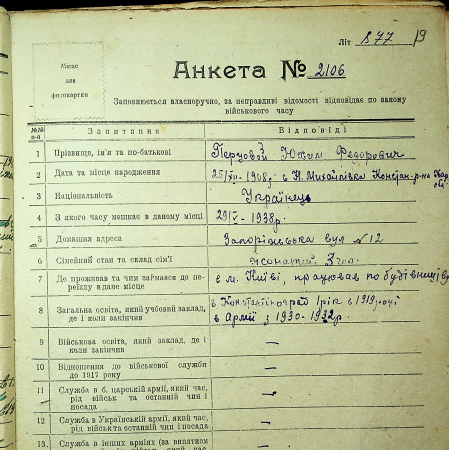 19
Літ 877
Місце
для
фотокартки
Анкета № 2106
Заповнюється власноручно, за неправдиві відомості відповідає по закону
військового часу
№№ п-п Запитання Відповіді
1 Прізвище, ім'я та по-батькові Перцовой Юхим Федорович
2 Дата та місце народження 1908р. в Н. Михайлівка Констан-р-на
3 Національність Українець
4 З якого часу мешкає в даному місці 29/V - 1938р.
5 Домашня адреса Запоріжська вул №12
6 Сімейний стан та склад сім'ї жонатий 3 чол.
7 Де проживав та чим займався до пе-
реїзду в дане місце в м. Київі, працював по
8 Загальна освіта, який учбовий заклад, в Константіноград 1919
де і коли закінчив в Армії з 1930-1932р.
9 Військова освіта, який заклад, де і
коли закінчив —
10 Відношення до військової служби
до 1917 року —
11 Служба в б. царській армії, який час,
рід військ та останній чин і
посада —
12 Служба в Українській армії, який час,
рід війська та останній чин і посада —
13. Служба в інших арміях (за винятком